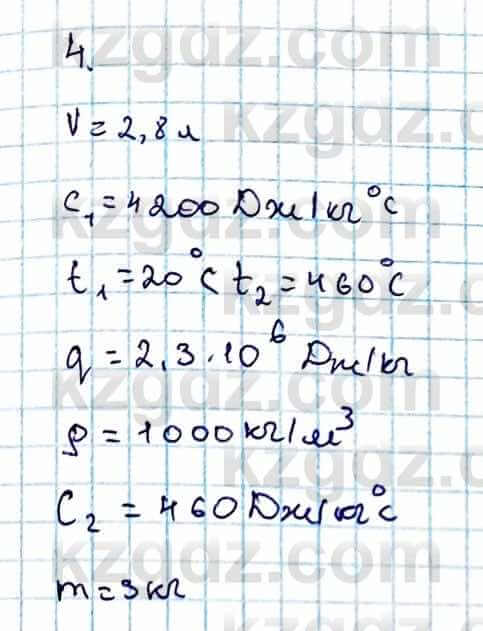 4.
V = 2,8 л
c₁ = 4200 Дж/кг°С
t₁ = 20°С t₂ = 460°С
q = 2,3 · 10⁶ Дж/кг
ρ = 1000 кг/м³
C₂ = 460 Дж/кг°С
m = 3 кг
kzgdz.com